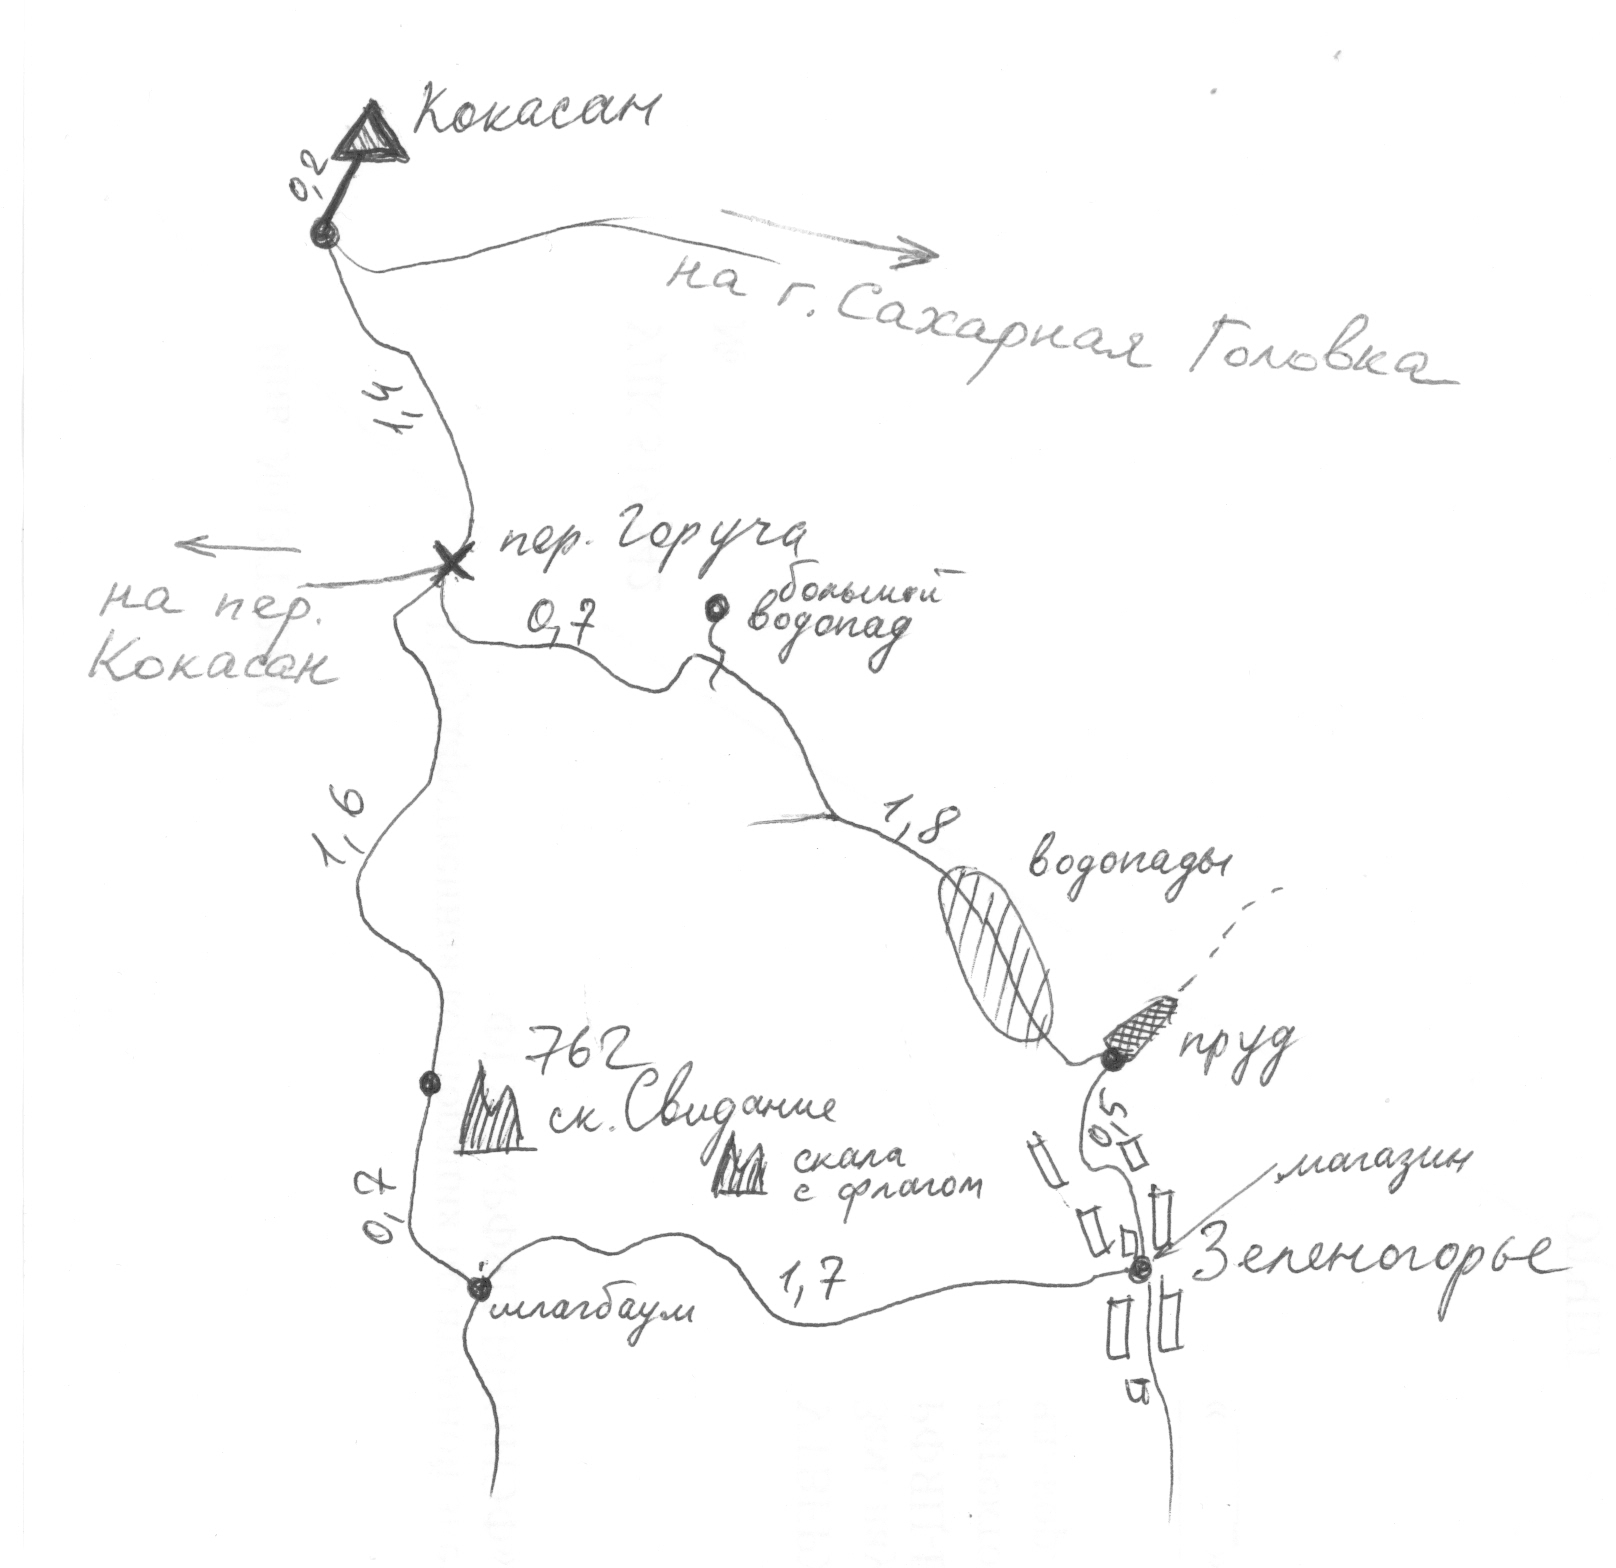 Кокасан
0,2
на г. Сахарная Головка
1,4
пер. Горуча
на пер.
Кокасан
0,7
большой
водопад
1,6
1,8
водопады
пруд
762
ск. Свидание
скала
с флагом
0,5
магазин
0,7
Зеленогорье
1,7
шлагбаум